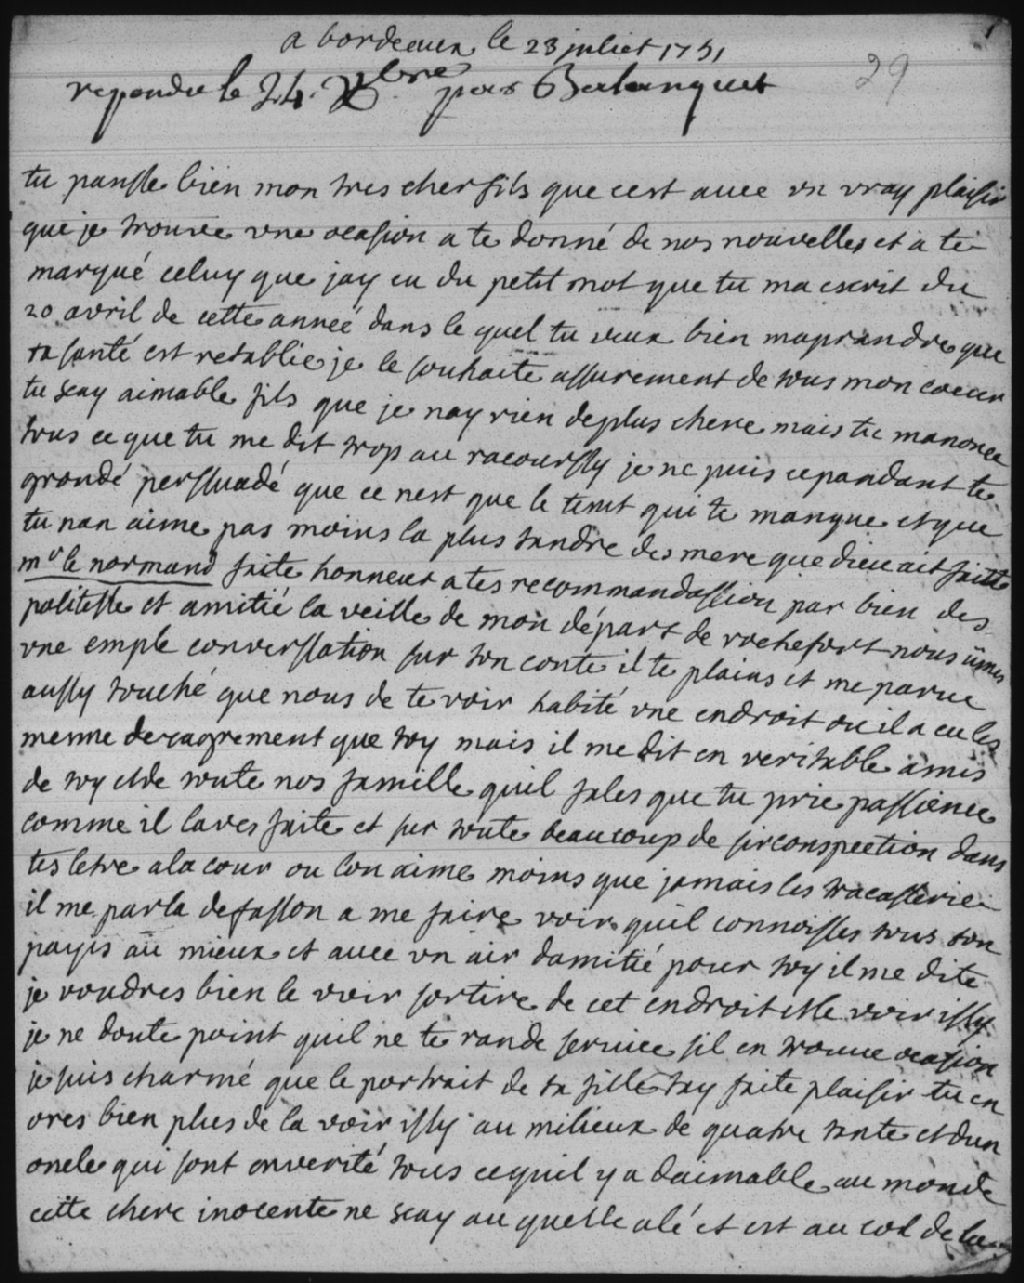 a bordeaux le 23 juliet 1751
29
repondu le 24. Xbre par Balanquet
tu pansse bien mon tres cher fils que cest avec vn vray plaisir
que je trouve vne ocasion a te donné de nos nouvelles et a te
marqué celuy que jay eu du petit mot que tu ma escrit du
20 avril de cette anneé dans le quel tu veux bien maprandre que
ta santé est retablie je le souhaite assurement de tous mon coeur
tu scay aimable fils que je nay rien de plus chere mais tu manonce
tous ce que tu me dit trop au racourssy je ne puis cepandant te
grondé perssuadé que ce nest que le temt qui te manque et que
tu nan aime pas moins la plus tandre des mere que dieu ait faitte
mr le normand faite honneur a tes recommandassion par bien des
politesse et amitié la veille de mon départ de rochefort nous umes
vne emple converssation sur ton conte il te plains et me parue
aussy touché que nous de te voir habité vne endroit ou il a eu les
mesme desagrement que toy mais il me dit en veritable amis
de toy et de toute nos famille quil fales que tu prie passience
comme il laves faite et sur toute beaucoup de sirconspection dans
tes letre a la cour ou lon aime moins que jamais les tracasserie
il me parla de fasson a me faire voir quil connoisses tous ton
payis au mieux et avec vn air damitié pour toy il me dite
je voudres bien le voir sortire de cet endroit et le voir issy
je ne doute point quil ne te rande service sil en trouve ocasion
je suis charmé que le portrait de ta fille tay faite plaisir tu en
ores bien plus de la voir issy au milieux de quatre tante et dun
oncle qui sont en verité tous cequil y a daimable au monde
cette chere inocente ne scay au quelle alé et est au col de la